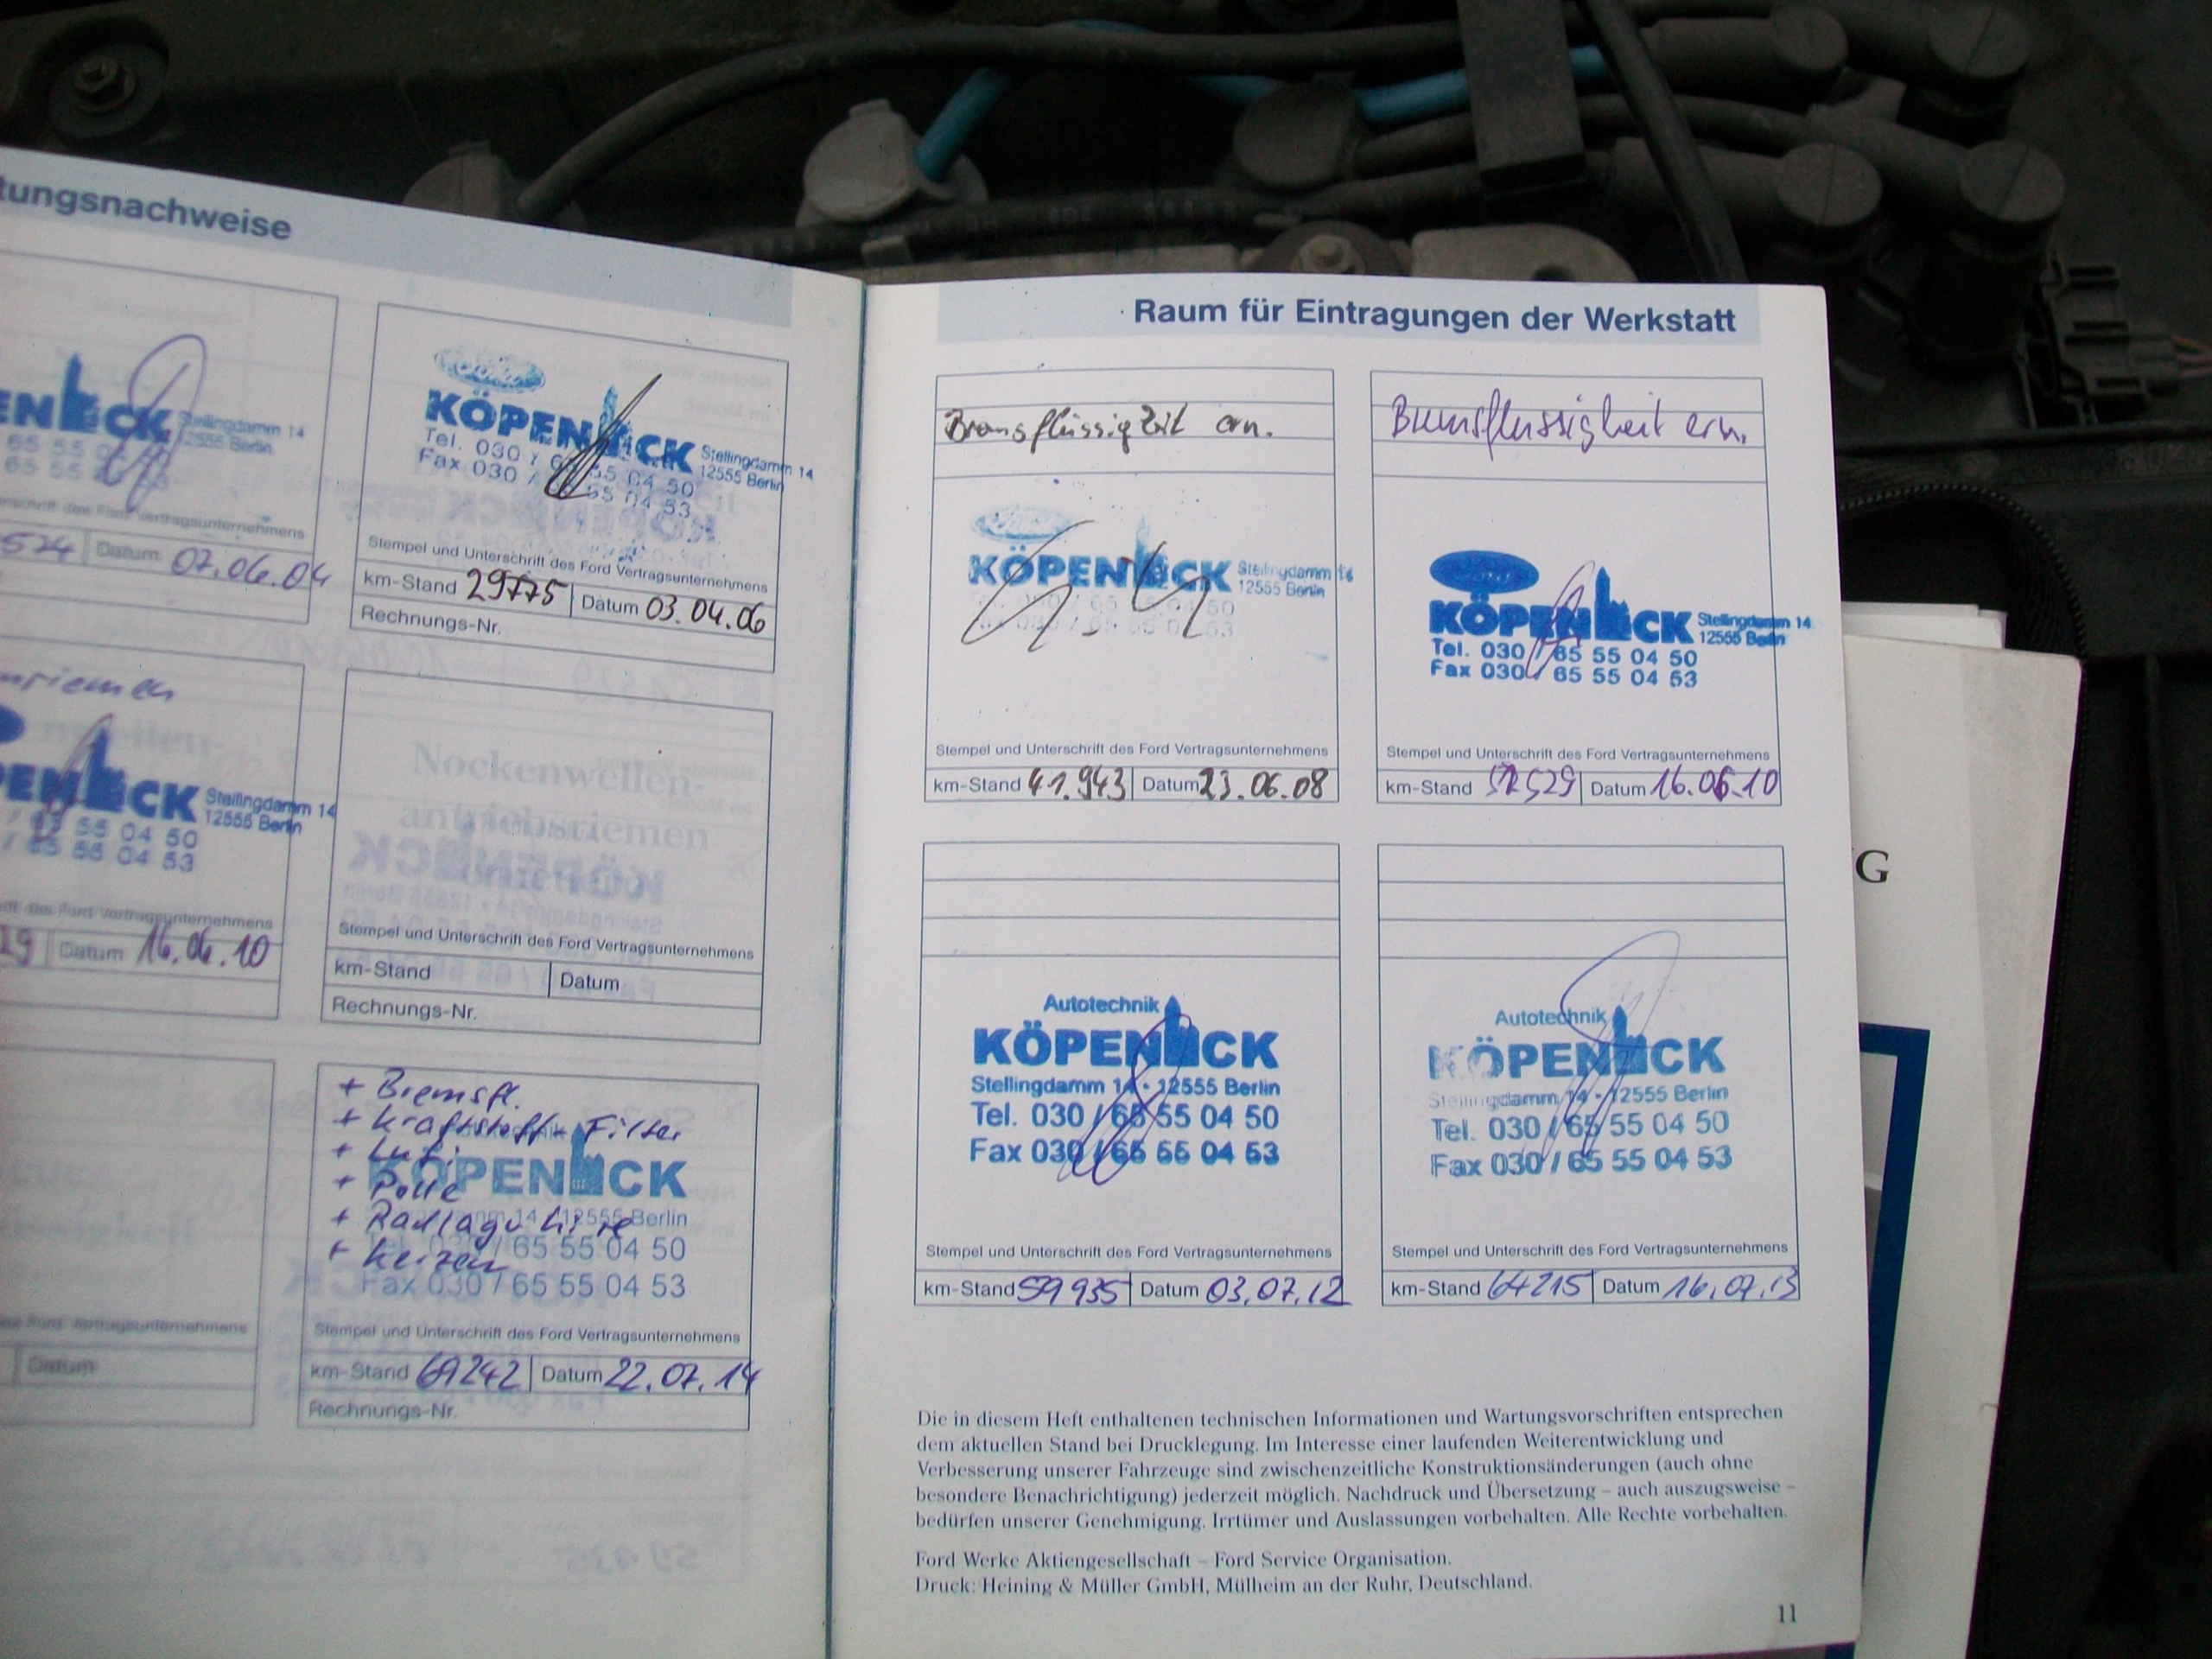 tungsnachweise
CK Stellingdamm 14
12555 Berlin
65 55
65 55
Vertragsunternehmens
574 Datum 07.06.04
Ford
KÖPENICK Stellingdamm 14
12555 Berlin
Tel. 030 / 65 55 04 50
Fax 030 / 65 55 04 53
Stempel und Unterschrift des Ford Vertragsunternehmens
km-Stand 29775 Datum 03.04.06
Rechnungs-Nr.
nriemen
PENICK Stellingdamm 14
12555 Berlin
/ 65 55 04 50
/ 65 55 04 53
des Ford Vertragsunternehmens
29 Datum 16.06.10
Nockenwellen-
antriebsriemen
Stempel und Unterschrift des Ford Vertragsunternehmens
km-Stand Datum
Rechnungs-Nr.
Vertragsunternehmens
Datum
+ Bremsfl.
+ Kraftstoff-Filter
+ Lufi
+ Polle
+ Kerzen
KÖPENICK
12555 Berlin
Tel. 030 / 65 55 04 50
Fax 030 / 65 55 04 53
Stempel und Unterschrift des Ford Vertragsunternehmens
km-Stand 69242 Datum 22.07.14
Rechnungs-Nr.
Raum für Eintragungen der Werkstatt
Bremsflüssigkeit ern.
KÖPENICK Stellingdamm 14
12555 Berlin
Tel. 030 / 65 55 04 50
Fax 030 / 65 55 04 53
Stempel und Unterschrift des Ford Vertragsunternehmens
km-Stand 41.943 Datum 23.06.08
Bremsflüssigkeit ern.
Ford
KÖPENICK Stellingdamm 14
12555 Berlin
Tel. 030 / 65 55 04 50
Fax 030 / 65 55 04 53
Stempel und Unterschrift des Ford Vertragsunternehmens
km-Stand Datum 16.06.10
Autotechnik
KÖPENICK
Stellingdamm 14 · 12555 Berlin
Tel. 030 / 65 55 04 50
Fax 030 / 65 55 04 53
Stempel und Unterschrift des Ford Vertragsunternehmens
km-Stand 59935 Datum 03.07.12
Autotechnik
KÖPENICK
Stellingdamm 14 · 12555 Berlin
Tel. 030 / 65 55 04 50
Fax 030 / 65 55 04 53
Stempel und Unterschrift des Ford Vertragsunternehmens
km-Stand 64215 Datum 16.07.13
Die in diesem Heft enthaltenen technischen Informationen und Wartungsvorschriften entsprechen
dem aktuellen Stand bei Drucklegung. Im Interesse einer laufenden Weiterentwicklung und
Verbesserung unserer Fahrzeuge sind zwischenzeitliche Konstruktionsänderungen (auch ohne
besondere Benachrichtigung) jederzeit möglich. Nachdruck und Übersetzung – auch auszugsweise –
bedürfen unserer Genehmigung. Irrtümer und Auslassungen vorbehalten. Alle Rechte vorbehalten.
Ford Werke Aktiengesellschaft – Ford Service Organisation.
Druck: Heining & Müller GmbH, Mülheim an der Ruhr, Deutschland.
11
G